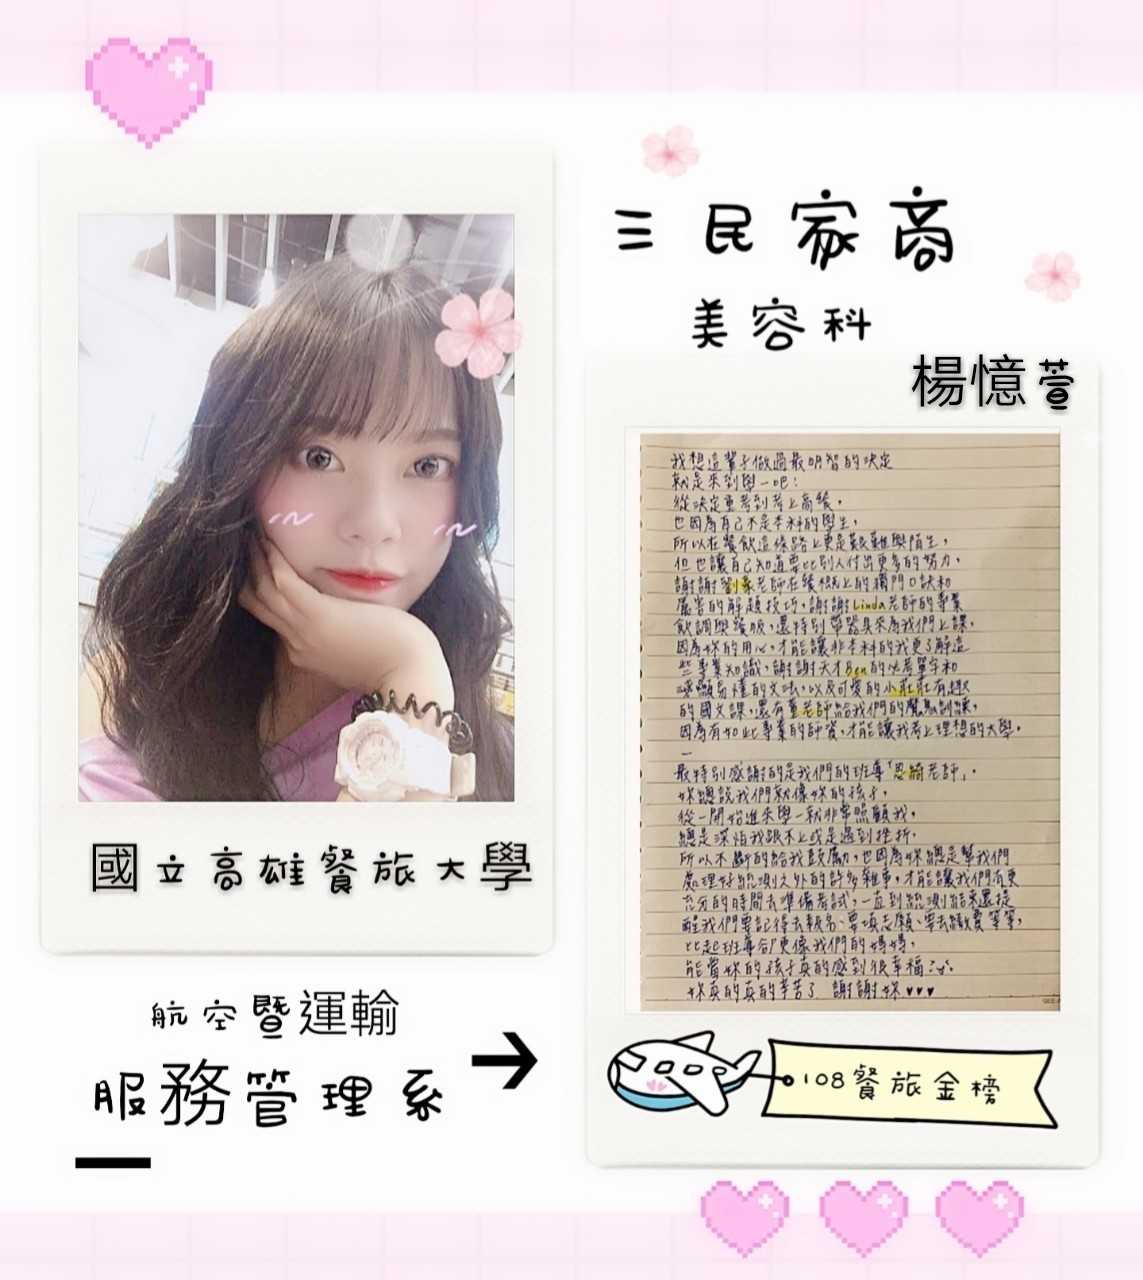 三民家商
美容科
楊憶萱
國立高雄餐旅大學
航空暨運輸
服務管理系
我想這輩子做過最明智的決定
就是來到學一吧!
從決定重考到考上高餐,
也因為自己不是本科的學生,
所以在餐飲這條路上更是艱難與陌生,
但也讓自己知道要比別人付出更多的努力,
謝謝劉豪老師在餐概上的獨門口訣和
厲害的解題技巧,謝謝Linda老師的專業
飲調與餐服,還特別帶器具來為我們上課,
因為妳的用心,才能讓非本科的我更了解這
些專業知識,謝謝天才Ben的必考單字和
淺顯易懂的文法,以及可愛的小莊莊有趣
的國文課,還有董老師給我們的魔鬼訓練,
因為有如此專業的師資,才能讓我考上理想的大學。
最特別感謝的是我們的班導「思綺老師」,
妳總說我們就像妳的孩子,
從一開始進來學一就非常照顧我,
總是深怕我跟不上或是遇到挫折,
所以不斷的給我鼓勵,也因為妳總是幫我們
處理好統測之外的許多雜事,才能讓我們有更
充分的時間去準備考試,一直到統測結束還提
醒我們要記得去報名、要填志願、要去繳費等等,
比起班導卻更像我們的媽媽,
能當妳的孩子真的感到很幸福
妳真的真的辛苦了 謝謝妳♥♥♥
108餐旅金榜